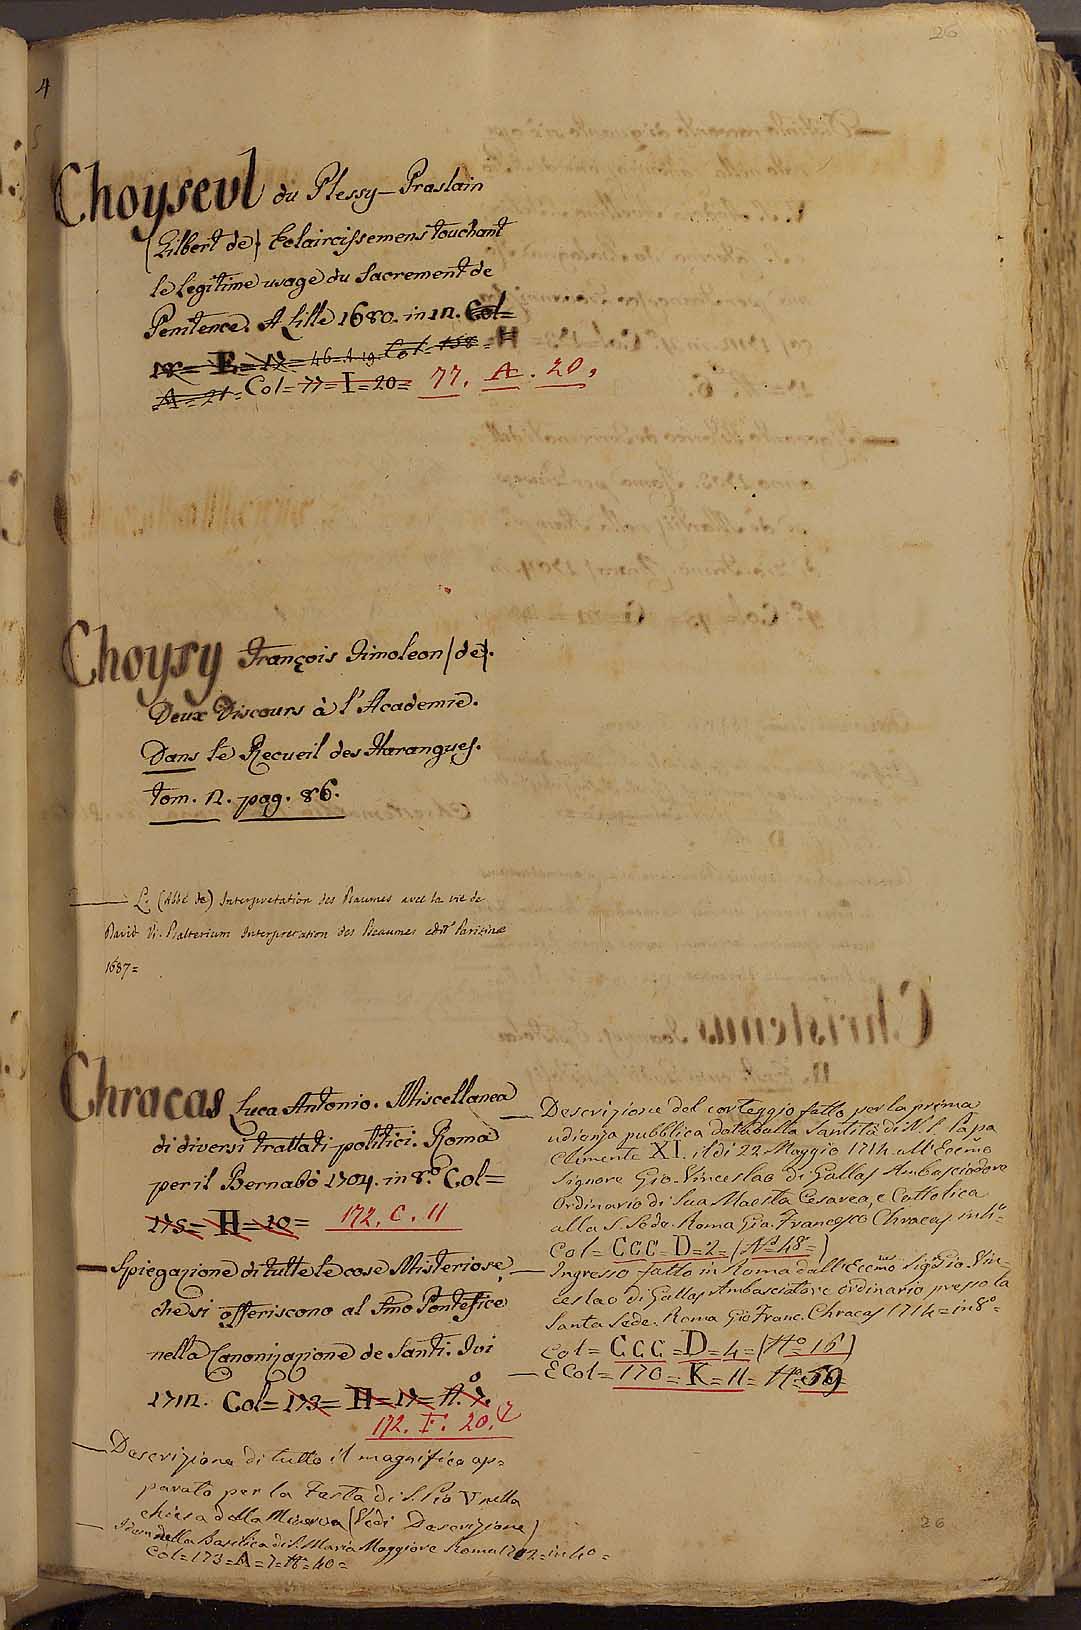 26
4
Choyseul du Plessy-Praslain
(Gilbert de) Eclaircissemens touchant
le legitime usage du Sacrement de
Penitence. A Lille 1680. in 12. Col=
18= E= 12= 46. A. 19. Col= 158=
A= 21= Col= 77= I= 20= 77. A. 20.
Choysy François Timoleon (de).
Deux Discours à l'Academie.
Dans le Recueil des Harangues.
tom. 2. pag. 86.
L. (Abbé de) Interpretation des Psaumes avec la vie de
David. V. Psalterium Interpretation des Pseaumes edit. Parisinæ
1687=
Chracas Luca Antonio. Miscellanea
di diversi trattati politici. Roma
per il Bernabò 1704. in 8.º Col=
175= H= 10= 172. C. 11
— Spiegazione di tutte le cose Misteriose,
che si offeriscono al Smo Pontefice
nella Canonizazione de Santi. Ivi
1712. Col= 173= H= 17= Nº. 7.
172. F. 20. 7
— Descrizione di tutto il magnifico ap=
parato per la Festa di S. Pio V nella
chiesa della Minerva (Vedi Descrizione)
— Idem nella Basilica di S. Maria Maggiore Roma 1712= in 4º=
Col= 173= A= 7= Nº= 40=
— Descrizione del corteggio fatto per la prima
udienza pubblica data dalla Santità di N. S. Papa
Clemente XI. il di 22 Maggio 1714. all'Eccmo
Signore Gio. Vinceslao di Gallas Ambasciadore
Ordinario di Sua Maestà Cesarea, e Cattolica
alla S. Sede. Roma Gio. Francesco Chracas in 4º=
Col= CCC= D= 2= (Nº 48=)
— Ingresso fatto in Roma dall'Eccmo Sig. Gio. Vin=
ceslao di Gallas Ambasciatore ordinario presso la
Santa Sede. Roma Gio Franc. Chracas 1714= in 8º=
Col= CCC= D= 4= (Nº 16)
— E Col= 170= K= 11= Nº 59=
26